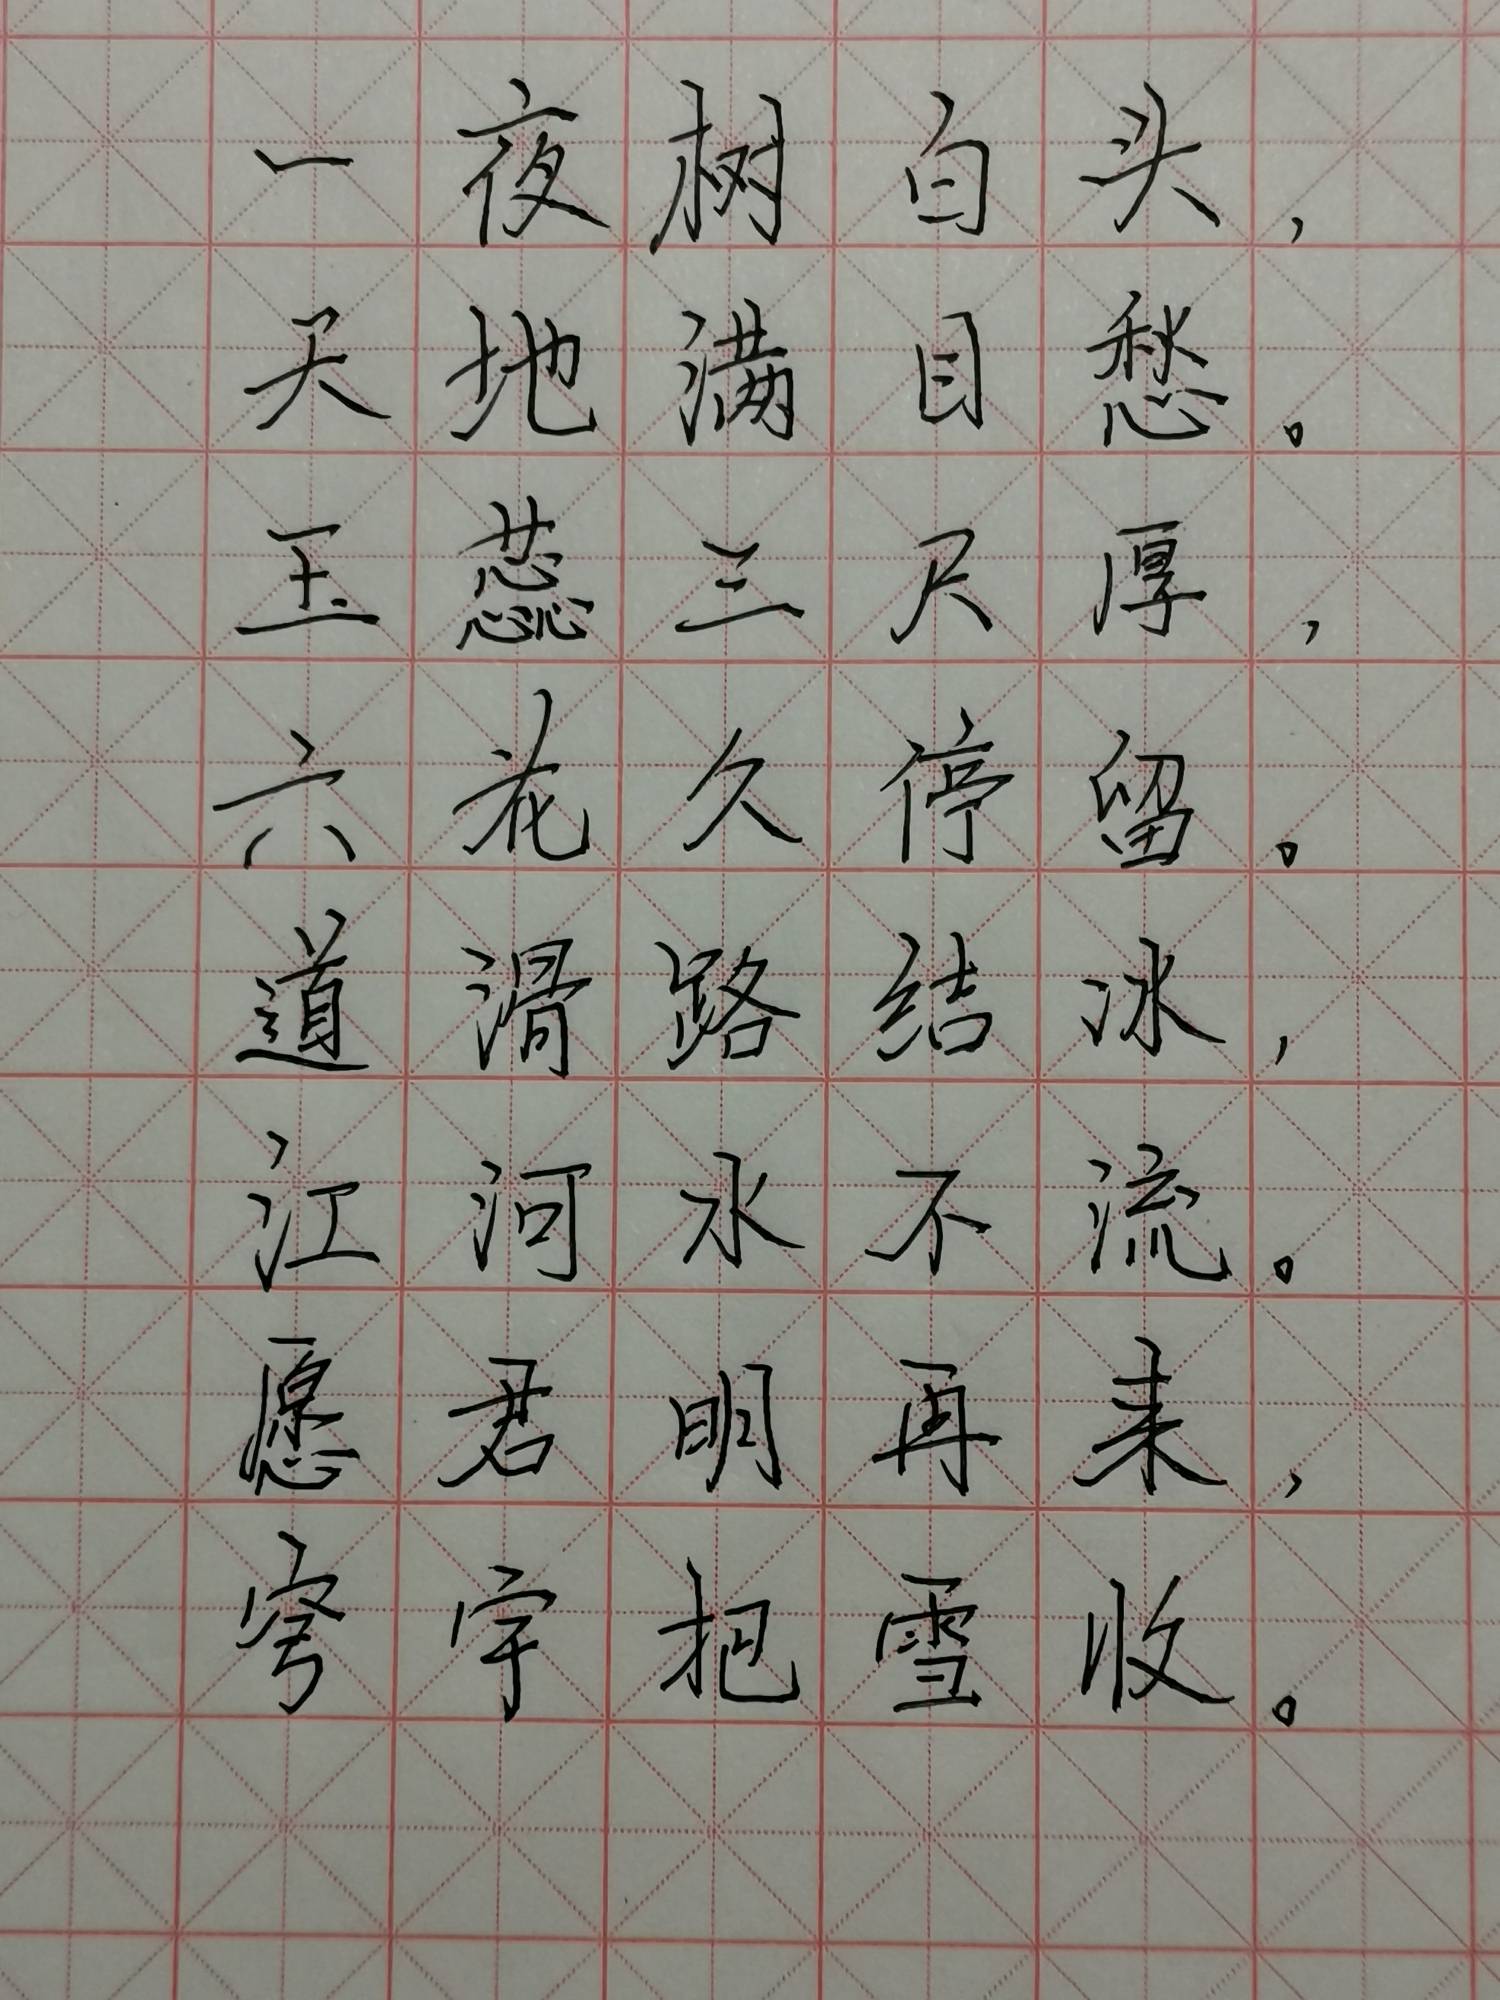 一夜树白头，
天地满目愁。
玉蕊三尺厚，
六花久停留。
道滑路结冰，
江河水不流。
愿君明再来，
穹宇把雪收。